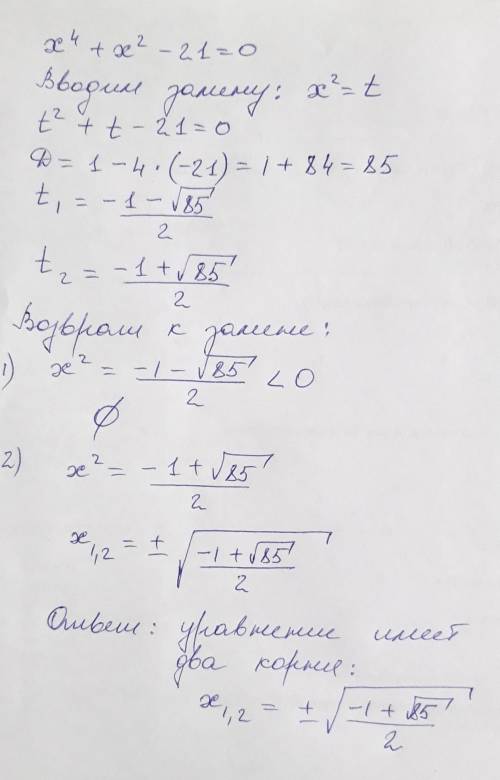 x⁴ + x² - 21 = 0
Вводим замену: x² = t
t² + t - 21 = 0
D = 1 - 4 · (-21) = 1 + 84 = 85
t₁ = (-1 - √85)/2
t₂ = (-1 + √85)/2
Возврат к замене:
1) x² = (-1 - √85)/2 < 0
∅
2) x² = (-1 + √85)/2
x₁,₂ = ± √((-1 + √85)/2)
Ответ: уравнение имеет
два корня:
x₁,₂ = ± √((-1 + √85)/2)